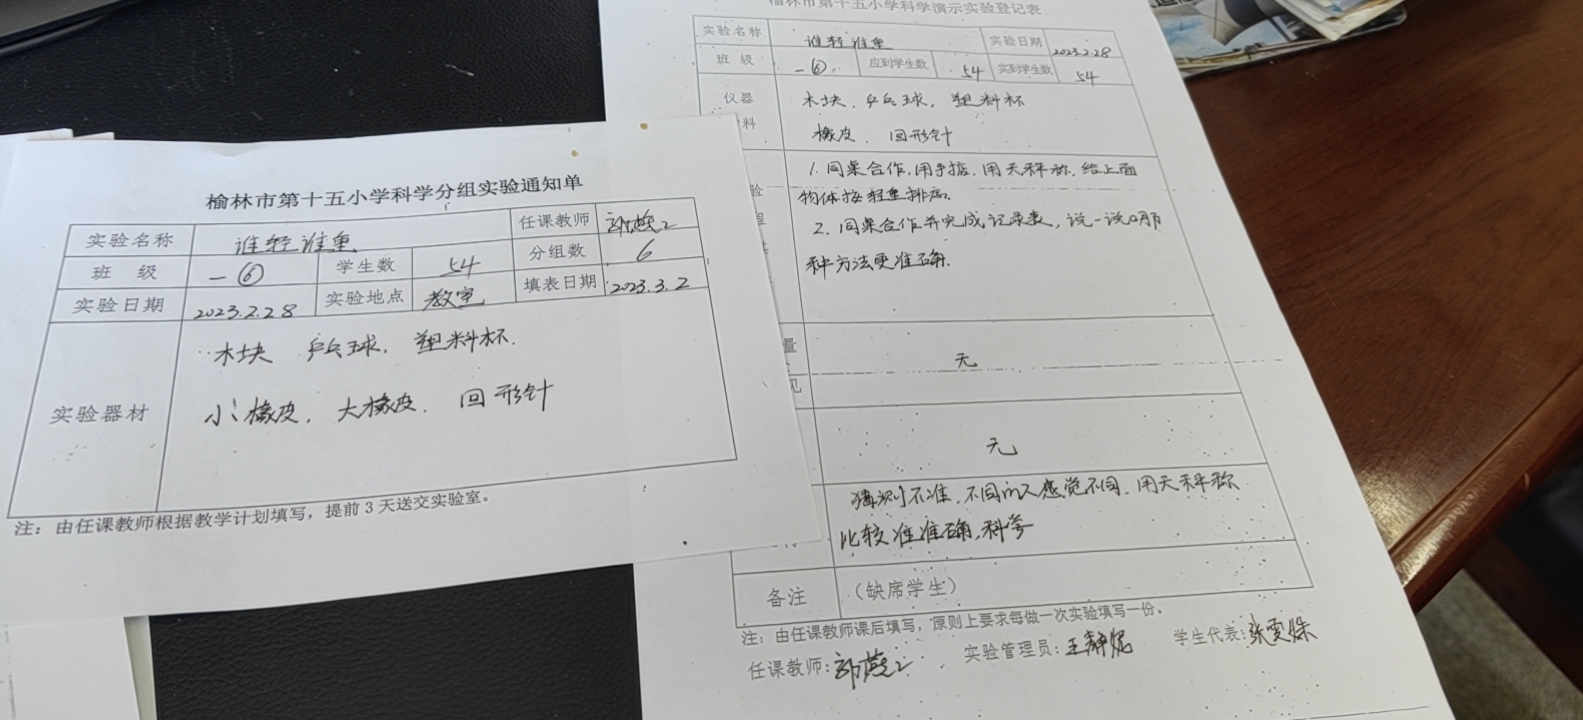 榆林市第十五小学科学分组实验通知单
实验名称 谁轻谁重 任课教师
班 级 一⑥ 学生数 54 分组数 6
实验日期 2023.2.28 实验地点 教室 填表日期 2023.3.2
实验器材 木块 乒乓球, 塑料杯.
小橡皮, 大橡皮. 回形针
注: 由任课教师根据教学计划填写, 提前3天送交实验室。
榆林市第十五小学科学演示实验登记表
实验名称 谁轻谁重 实验日期 2023.2.28
班 级 一⑥ 应到学生数 54 实到学生数 54
仪器 木块. 乒乓球, 塑料杯
料 橡皮. 回形针
验 1. 同桌合作, 用手掂, 用天秤称, 给上面
物体按轻重排序.
程 2. 同桌合作并完成记录表, 说一说哪
种方法更准确.
量 无
见
无
猜测不准, 不同的人感觉不同, 用天秤称
比较准准确, 科学
备注 (缺席学生)
注: 由任课教师课后填写, 原则上要求每做一次实验填写一份。
任课教师: 实验管理员: 学生代表: